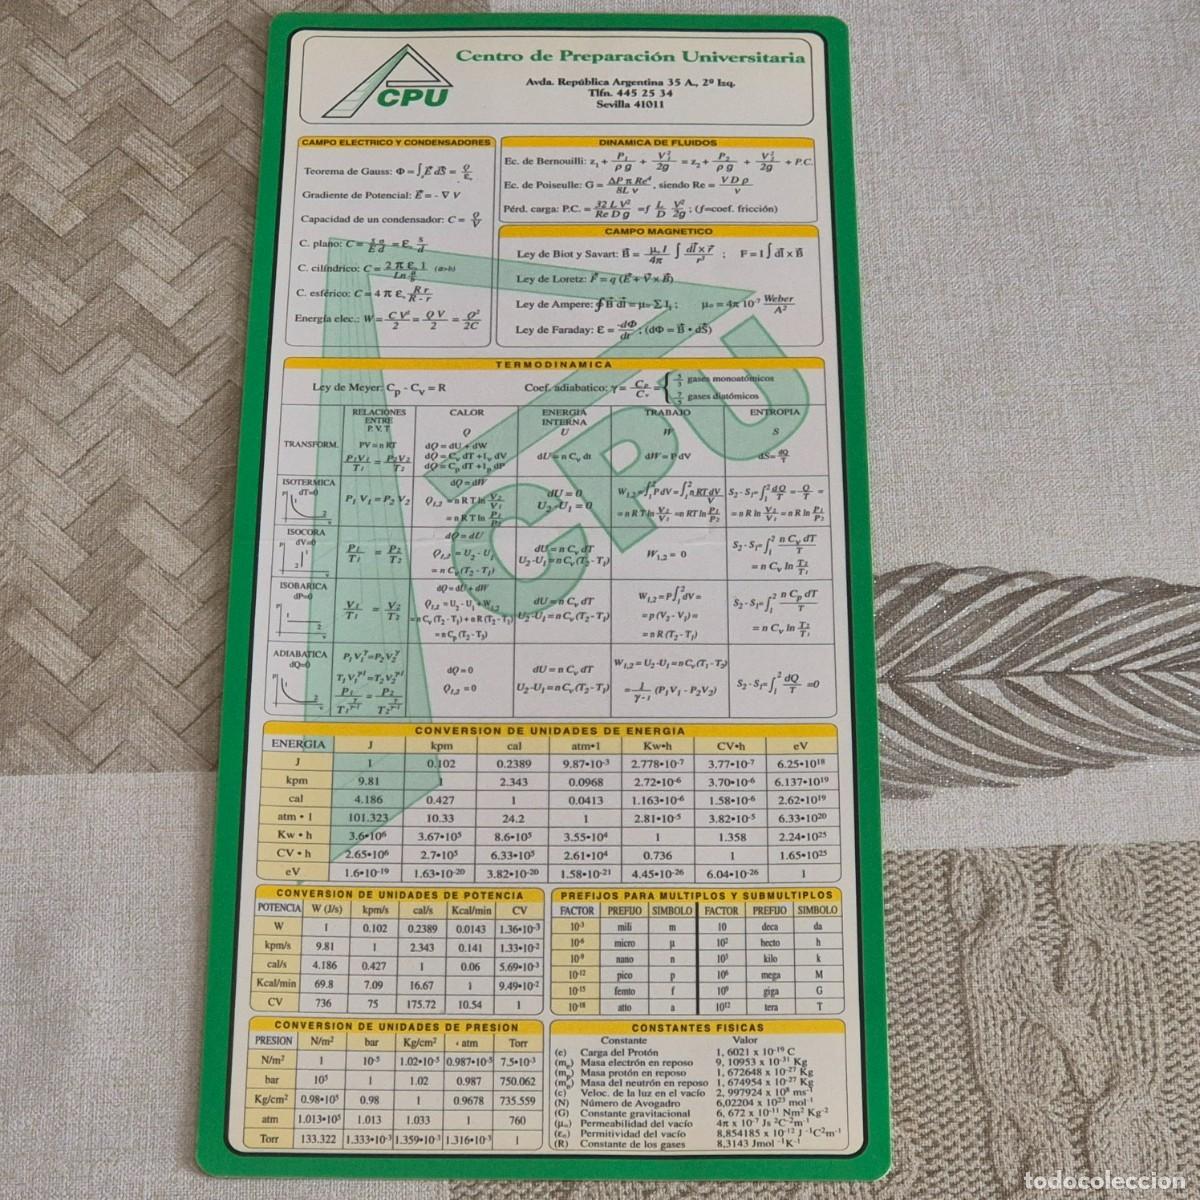 CPU
Centro de Preparación Universitaria
Avda. República Argentina 35 A., 2º Izq.
Tlfn. 445 25 34
Sevilla 41011
CAMPO ELECTRICO Y CONDENSADORES
Teorema de Gauss: Φ = ∫s E⃗ dS⃗ = Q/ε₀
Gradiente de Potencial: E⃗ = - ∇ V
Capacidad de un condensador: C = Q/V
C. plano:
C. cilíndrico: C = 2 π ε₀ l / Ln (a>b)
C. esférico: C = 4 π ε₀ R r / R - r
Energía elec.: W = C V² / 2 = Q V / 2 = Q² / 2C
DINAMICA DE FLUIDOS
Ec. de Bernouilli: z₁ + P₁/ρ g + V₁²/2g = z₂ + P₂/ρ g + V₂²/2g + P.C.
Ec. de Poiseulle: G = ΔP π Re⁴ / 8L ν , siendo Re = V D ρ / ν
Pérd. carga: P.C. = 32 L V² / Re D g = f L/D V²/2g ; (f=coef. fricción)
CAMPO MAGNETICO
Ley de Biot y Savart: B⃗ = μ₀ I / 4π ∫ dl⃗ x r⃗ / r³ ; F = I ∫ dl⃗ x B⃗
Ley de Loretz: F⃗ = q (E⃗ + V⃗ x B⃗)
Ley de Ampere: ∮ B⃗ dl⃗ = μ₀ Σ I₁ ; μ₀ = 4π 10⁻⁷ Weber/A²
Ley de Faraday: ε = -dΦ/dt ; (dΦ = B⃗ • dS⃗)
TERMODINAMICA
Ley de Meyer: Cp - Cv = R Coef. adiabatico: γ = Cp/Cv = { 5/3 gases monoatómicos
7/5 gases diatómicos
TRANSFORM. RELACIONES ENTRE P, V, T CALOR Q ENERGIA INTERNA U TRABAJO W ENTROPIA S
PV = n RT
P₁V₁/T₁ = P₂V₂/T₂
dQ = dU + dW
dQ = Cv dT + lv dV
dQ = Cp dT + lp dP
dU = n Cv dt
dW = P dV
dS = dQ/T
ISOTERMICA dT=0
P₁ V₁ = P₂ V₂
dQ = dW
Q₁,₂ = n R T ln V₂/V₁
= n R T ln P₁/P₂
dU = 0
U₂ - U₁ = 0
W₁,₂ = ∫₁² P dV = ∫₁² n RT dV / V
= n R T ln V₂/V₁ = n RT ln P₁/P₂
S₂ - S₁ = ∫₁² dQ/T = Q/T =
= n R ln V₂/V₁ = n R ln P₁/P₂
ISOCORA dV=0
P₁/T₁ = P₂/T₂
dQ = dU
Q₁,₂ = U₂ - U₁
= n Cv (T₂ - T₁)
dU = n Cv dT
U₂ - U₁ = n Cv (T₂ - T₁)
W₁,₂ = 0
S₂ - S₁ = ∫₁² n Cv dT / T
= n Cv ln T₂/T₁
ISOBARICA dP=0
V₁/T₁ = V₂/T₂
dQ = dU + dW
Q₁,₂ = U₂ - U₁ + W₁,₂
= n Cv (T₂ - T₁) + n R (T₂ - T₁)
= n Cp (T₂ - T₁)
dU = n Cv dT
U₂ - U₁ = n Cv (T₂ - T₁)
W₁,₂ = P ∫₁² dV =
= p (V₂ - V₁) =
= n R (T₂ - T₁)
S₂ - S₁ = ∫₁² n Cp dT / T
= n Cv ln T₂/T₁
ADIABATICA dQ=0
P₁ V₁^γ = P₂ V₂^γ
T₁ V₁^γ-1 = T₂ V₂^γ-1
dQ = 0
Q₁,₂ = 0
dU = n Cv dT
U₂ - U₁ = n Cv (T₂ - T₁)
W₁,₂ = U₂ - U₁ = n Cv (T₁ - T₂)
= 1/γ-1 (P₁V₁ - P₂V₂)
S₂ - S₁ = ∫₁² dQ/T = 0
CONVERSION DE UNIDADES DE ENERGIA
ENERGIA J kpm cal atm•l Kw•h CV•h eV
J 1 0.102 0.2389 9.87•10⁻³ 2.778•10⁻⁷ 3.77•10⁻⁷ 6.25•10¹⁸
kpm 9.81 1 2.343 0.0968 2.72•10⁻⁶ 3.70•10⁻⁶ 6.137•10¹⁹
cal 4.186 0.427 1 0.0413 1.163•10⁻⁶ 1.58•10⁻⁶ 2.62•10¹⁹
atm • l 101.323 10.33 24.2 1 2.81•10⁻⁵ 3.82•10⁻⁵ 6.33•10²⁰
Kw • h 3.6•10⁶ 3.67•10⁵ 8.6•10⁵ 3.55•10⁴ 1 1.358 2.24•10²⁵
CV • h 2.65•10⁶ 2.7•10⁵ 6.33•10⁵ 2.61•10⁴ 0.736 1 1.65•10²⁵
eV 1.6•10⁻¹⁹ 1.63•10⁻²⁰ 3.82•10⁻²⁰ 1.58•10⁻²¹ 4.45•10⁻²⁶ 6.04•10⁻²⁶ 1
CONVERSION DE UNIDADES DE POTENCIA
POTENCIA W (J/s) kpm/s cal/s Kcal/min CV
W 1 0.102 0.2389 0.0143 1.36•10⁻³
kpm/s 9.81 1 2.343 0.141 1.33•10⁻²
cal/s 4.186 0.427 1 0.06 5.69•10⁻³
Kcal/min 69.8 7.09 16.67 1 9.49•10⁻²
CV 736 75 175.72 10.54 1
PREFIJOS PARA MULTIPLOS Y SUBMULTIPLOS
FACTOR PREFIJO SIMBOLO FACTOR PREFIJO SIMBOLO
10⁻³ mili m 10 deca da
10⁻⁶ micro μ 10² hecto h
10⁻⁹ nano n 10³ kilo k
10⁻¹² pico p 10⁶ mega M
10⁻¹⁵ femto f 10⁹ giga G
10⁻¹⁸ atto a 10¹² tera T
CONVERSION DE UNIDADES DE PRESION
PRESION N/m² bar Kg/cm² atm Torr
N/m² 1 10⁻⁵ 1.02•10⁻⁵ 0.987•10⁻⁵ 7.5•10⁻³
bar 10⁵ 1 1.02 0.987 750.062
Kg/cm² 0.98•10⁵ 0.98 1 0.9678 735.559
atm 1.013•10⁵ 1.013 1.033 1 760
Torr 133.322 1.333•10⁻³ 1.359•10⁻³ 1.316•10⁻³ 1
CONSTANTES FISICAS
Constante Valor
(e) Carga del Protón 1, 6021 x 10⁻¹⁹ C
(me) Masa electrón en reposo 9, 10953 x 10⁻³¹ Kg
(mp) Masa protón en reposo 1, 672648 x 10⁻²⁷ Kg
(mn) Masa del neutrón en reposo 1, 674954 x 10⁻²⁷ Kg
(c) Veloc. de la luz en el vacío 2, 997924 x 10⁸ ms⁻¹
(N) Número de Avogadro 6,02204 x 10²³ mol⁻¹
(G) Constante gravitacional 6, 672 x 10⁻¹¹ Nm² Kg⁻²
(μ₀) Permeabilidad del vacío 4π x 10⁻⁷ Js ²C⁻²m⁻¹
(ε₀) Permitividad del vacío 8,854185 x 10⁻¹² J ⁻¹C²m⁻¹
(R) Constante de los gases 8,3143 Jmol ⁻¹K⁻¹
CPU
todocoleccion